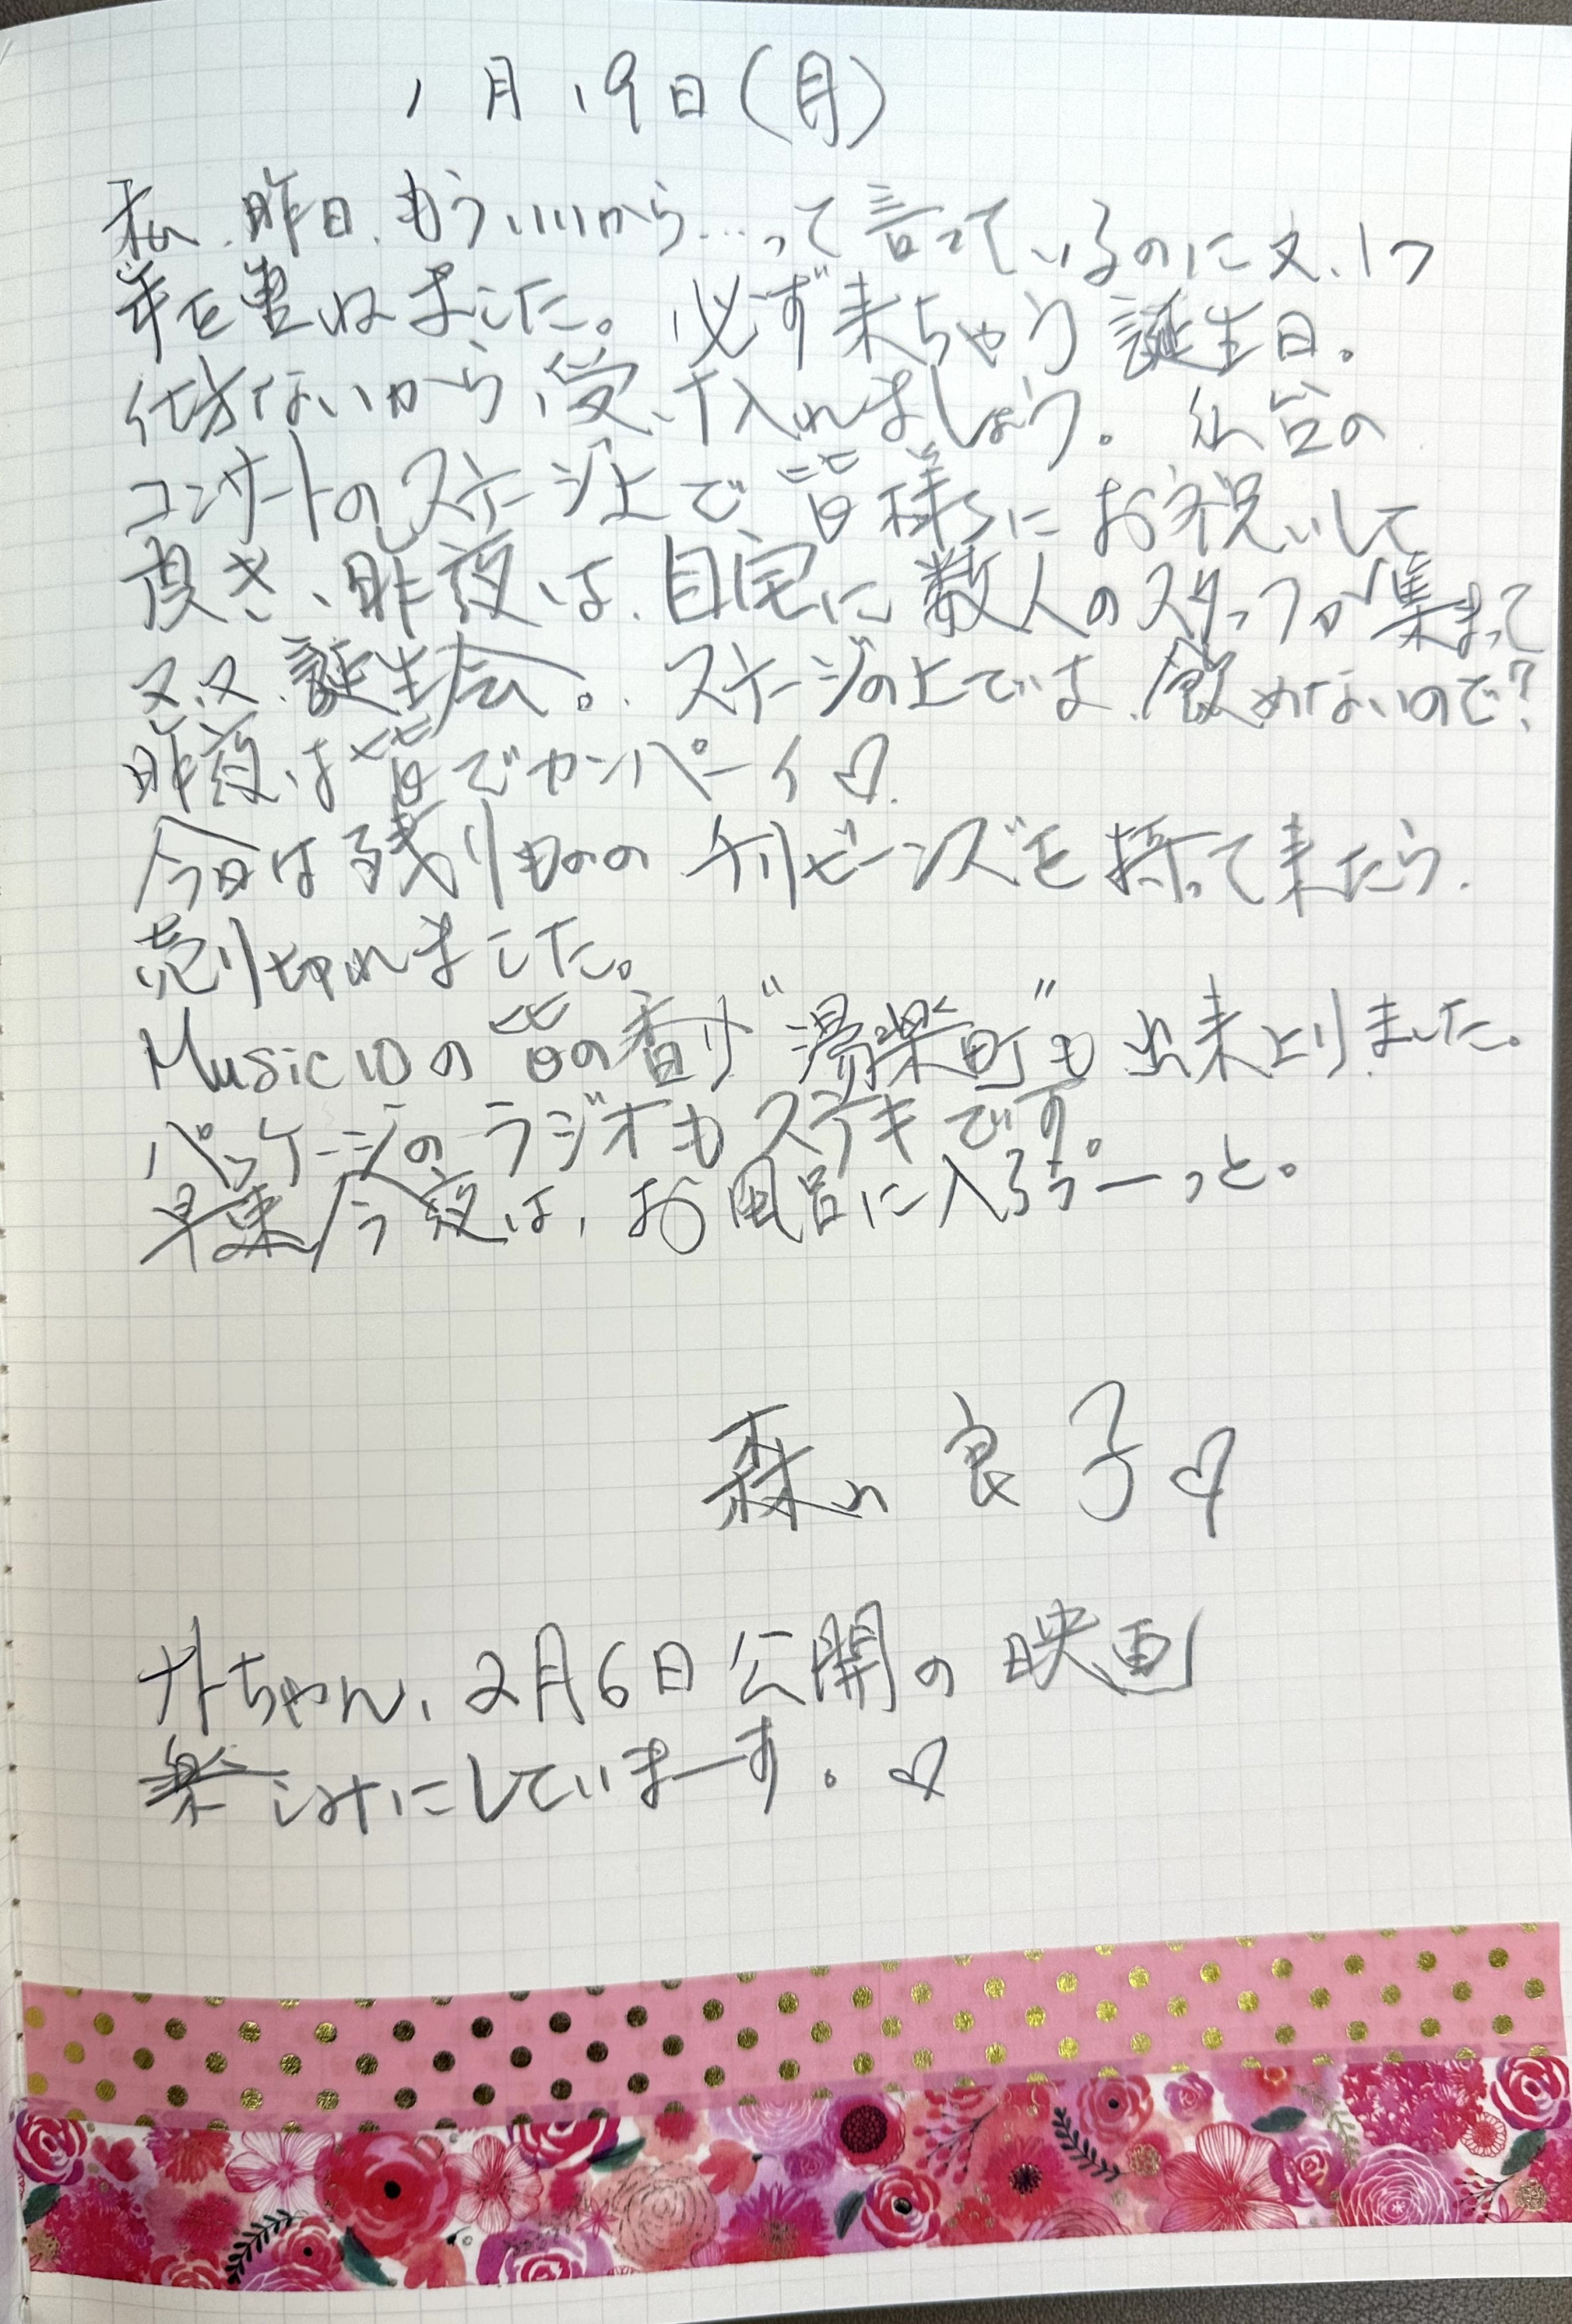 1月19日(月)
私、昨日、もういいから…って言っているのに又、1つ
年を重ねました。必ず来ちゃう誕生日。
仕方ないから、受け入れましょう。仙台の
コンサートのステージ上で皆様にお祝いして
頂き、昨夜は、自宅に数人のスタッフが集まって
又、又、誕生会。ステージの上では、飲めないので?
昨夜は皆でカンパーイ♡
今日は残りもののチリビーンズを持って来たら、
売り切れました。
Music10の音の香り"湯楽町"も出来上りました。
パッケージのラジオもステキです。
早速今夜は、お風呂に入ろうーっと。
森山良子♡
ナトちゃん、2月6日公開の映画
楽しみにしていまーす。♡